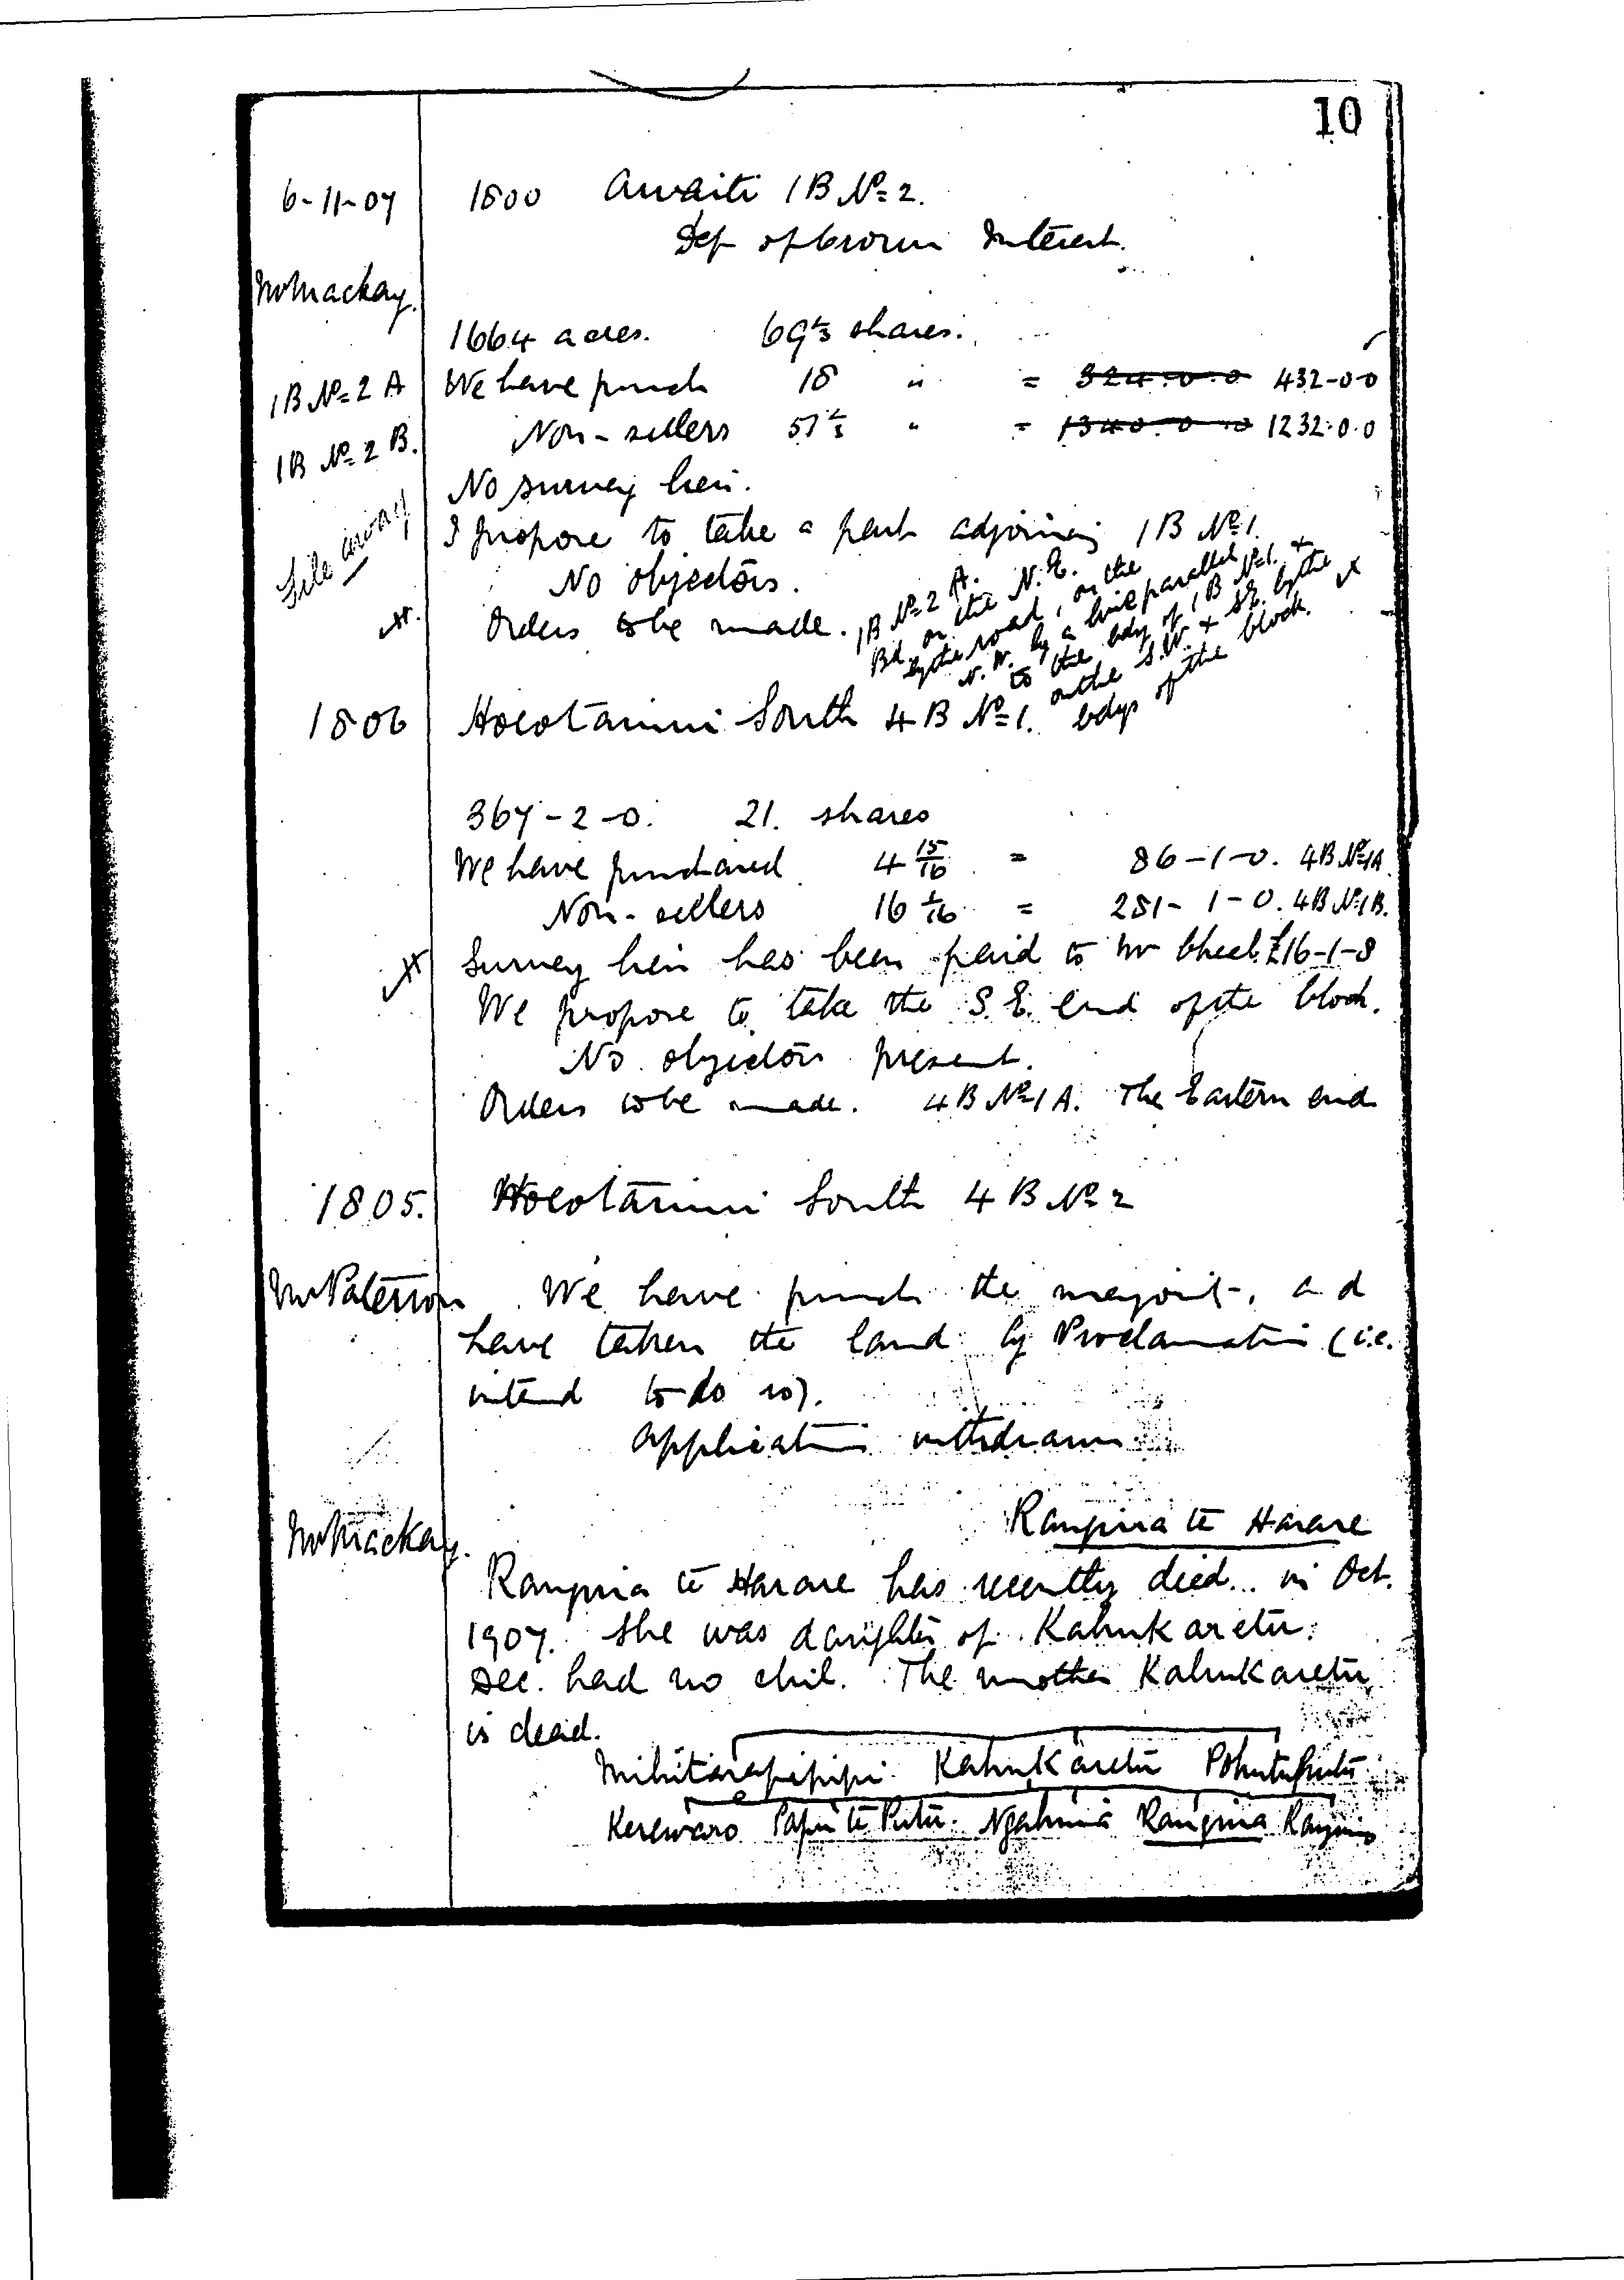 10
6-11-07 1800 Awaiti 1B No 2.
Def of Crown Interest.
Mr Mackay.
1664 acres. 69⅓ shares.
1B No 2 A We have purch 18 " = 324.0.0 432-0-0
1B No 2 B. Non-sellers 51⅓ " = 1340.0.0 1232.0.0
No survey lien.
File away
I propose to take a part adjoining 1B No 1.
No objectors.
Orders to be made.
1B No 2 A.
Bd on the N.E.
by the road, on the
N.W. by a line parallel
to the bdy of 1B No 1. +
on the S.W. + SE. by the
bdys of the block.
1806 Hoeotainui South 4B No 1.
367-2-0. 21. shares
We have purchased 4 15/16 = 86-1-0. 4B No 1A.
Non-sellers 16 1/16 = 281-1-0. 4B No 1B.
Survey lien has been paid to Mr Cheel £16-1-8
We propose to take the S.E. end of the block.
No objectors present.
Orders to be made. 4B No 1A. The Eastern end
1805. Hoeotainui South 4B No 2
Mr Paterson We have purch the majority, and
have taken the land by Proclamation (i.e.
intend to do so).
Application withdrawn.
Rangiria te Harare
Mr Mackay.
Rangiria te Harare has recently died... in Oct.
1907. She was daughter of Kahukaretu.
Dec. had no chil. The mother Kahukaretu
is dead.
Mihitarapipipi Kahukaretu Pohutuhutu
Kerewaro Papu te Putu. Ngahuia Rangiria